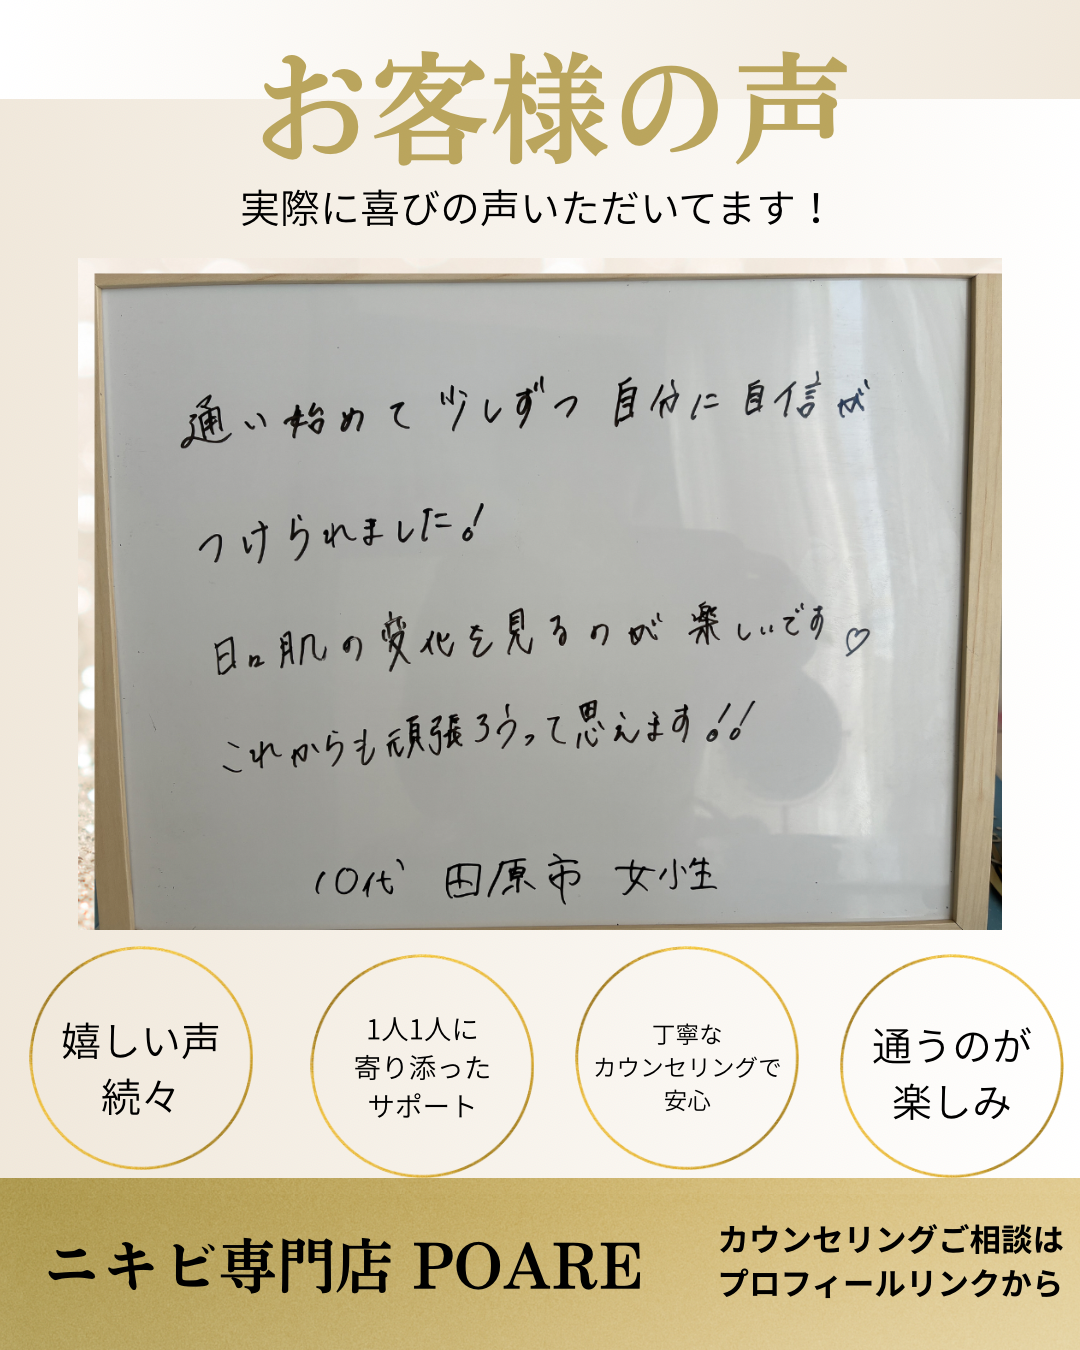 お客様の声
実際に喜びの声いただいてます！
通い始めて少しずつ自分に自信が
つけられました！
日々肌の変化を見るのが楽しいです♡
これからも頑張ろうって思えます!!
10代 田原市 女性
嬉しい声
続々
1人1人に
寄り添った
サポート
丁寧な
カウンセリングで
安心
通うのが
楽しみ
ニキビ専門店 POARE
カウンセリングご相談は
プロフィールリンクから